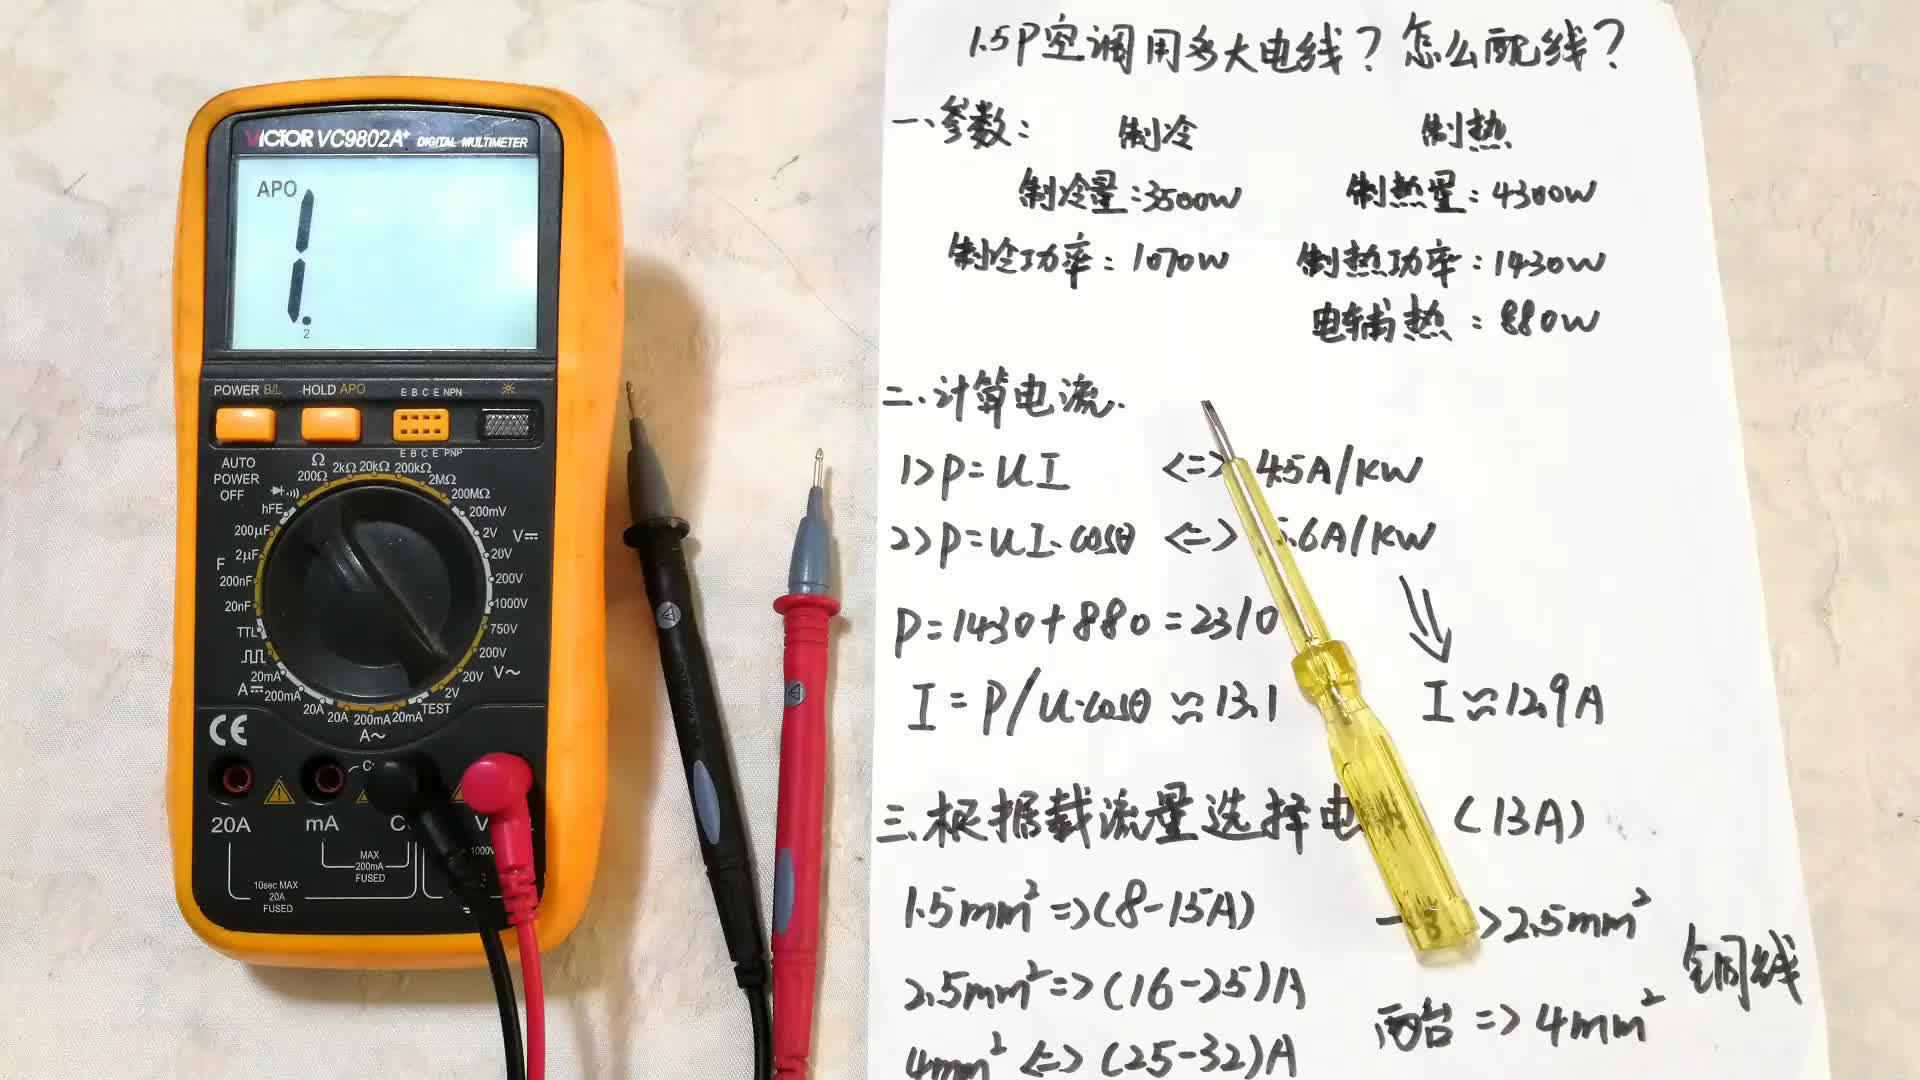 VICTOR VC9802A+ DIGITAL MULTIMETER
APO
1.
2
POWER B/L HOLD APO E B C E NPN
E B C E PNP
AUTO
POWER
OFF
Ω
200Ω 2kΩ 20kΩ 200kΩ 2MΩ 200MΩ
hFE 200mV
200μF 2V V
F 2μF 20V
200nF 200V
20nF 1000V
TTL 750V
200V
20mA 20V V~
A 200mA 2V
20A 20A 200mA 20mA TEST
A~
CE
20A mA
MAX
200mA
FUSED
1000V
10sec MAX
20A
FUSED
1.5P空调用多大电线？怎么配线？
一、参数： 制冷 制热
制冷量：3500W 制热量：4300W
制冷功率：1070W 制热功率：1430W
电辅热：880W
二、计算电流.
1>P=UI <=> 4.5A/KW
2>P=UI·cosθ <=> 5.6A/KW
P=1430+880=2310
I=P/U·cosθ≈13.1 I≈12.9A
三.根据载流量选择电 (13A)
1.5mm²=>(8-15A) 一 >2.5mm²
2.5mm²=>(16-25)A 铜线
两台=>4mm²
4mm²<=>(25-32)A